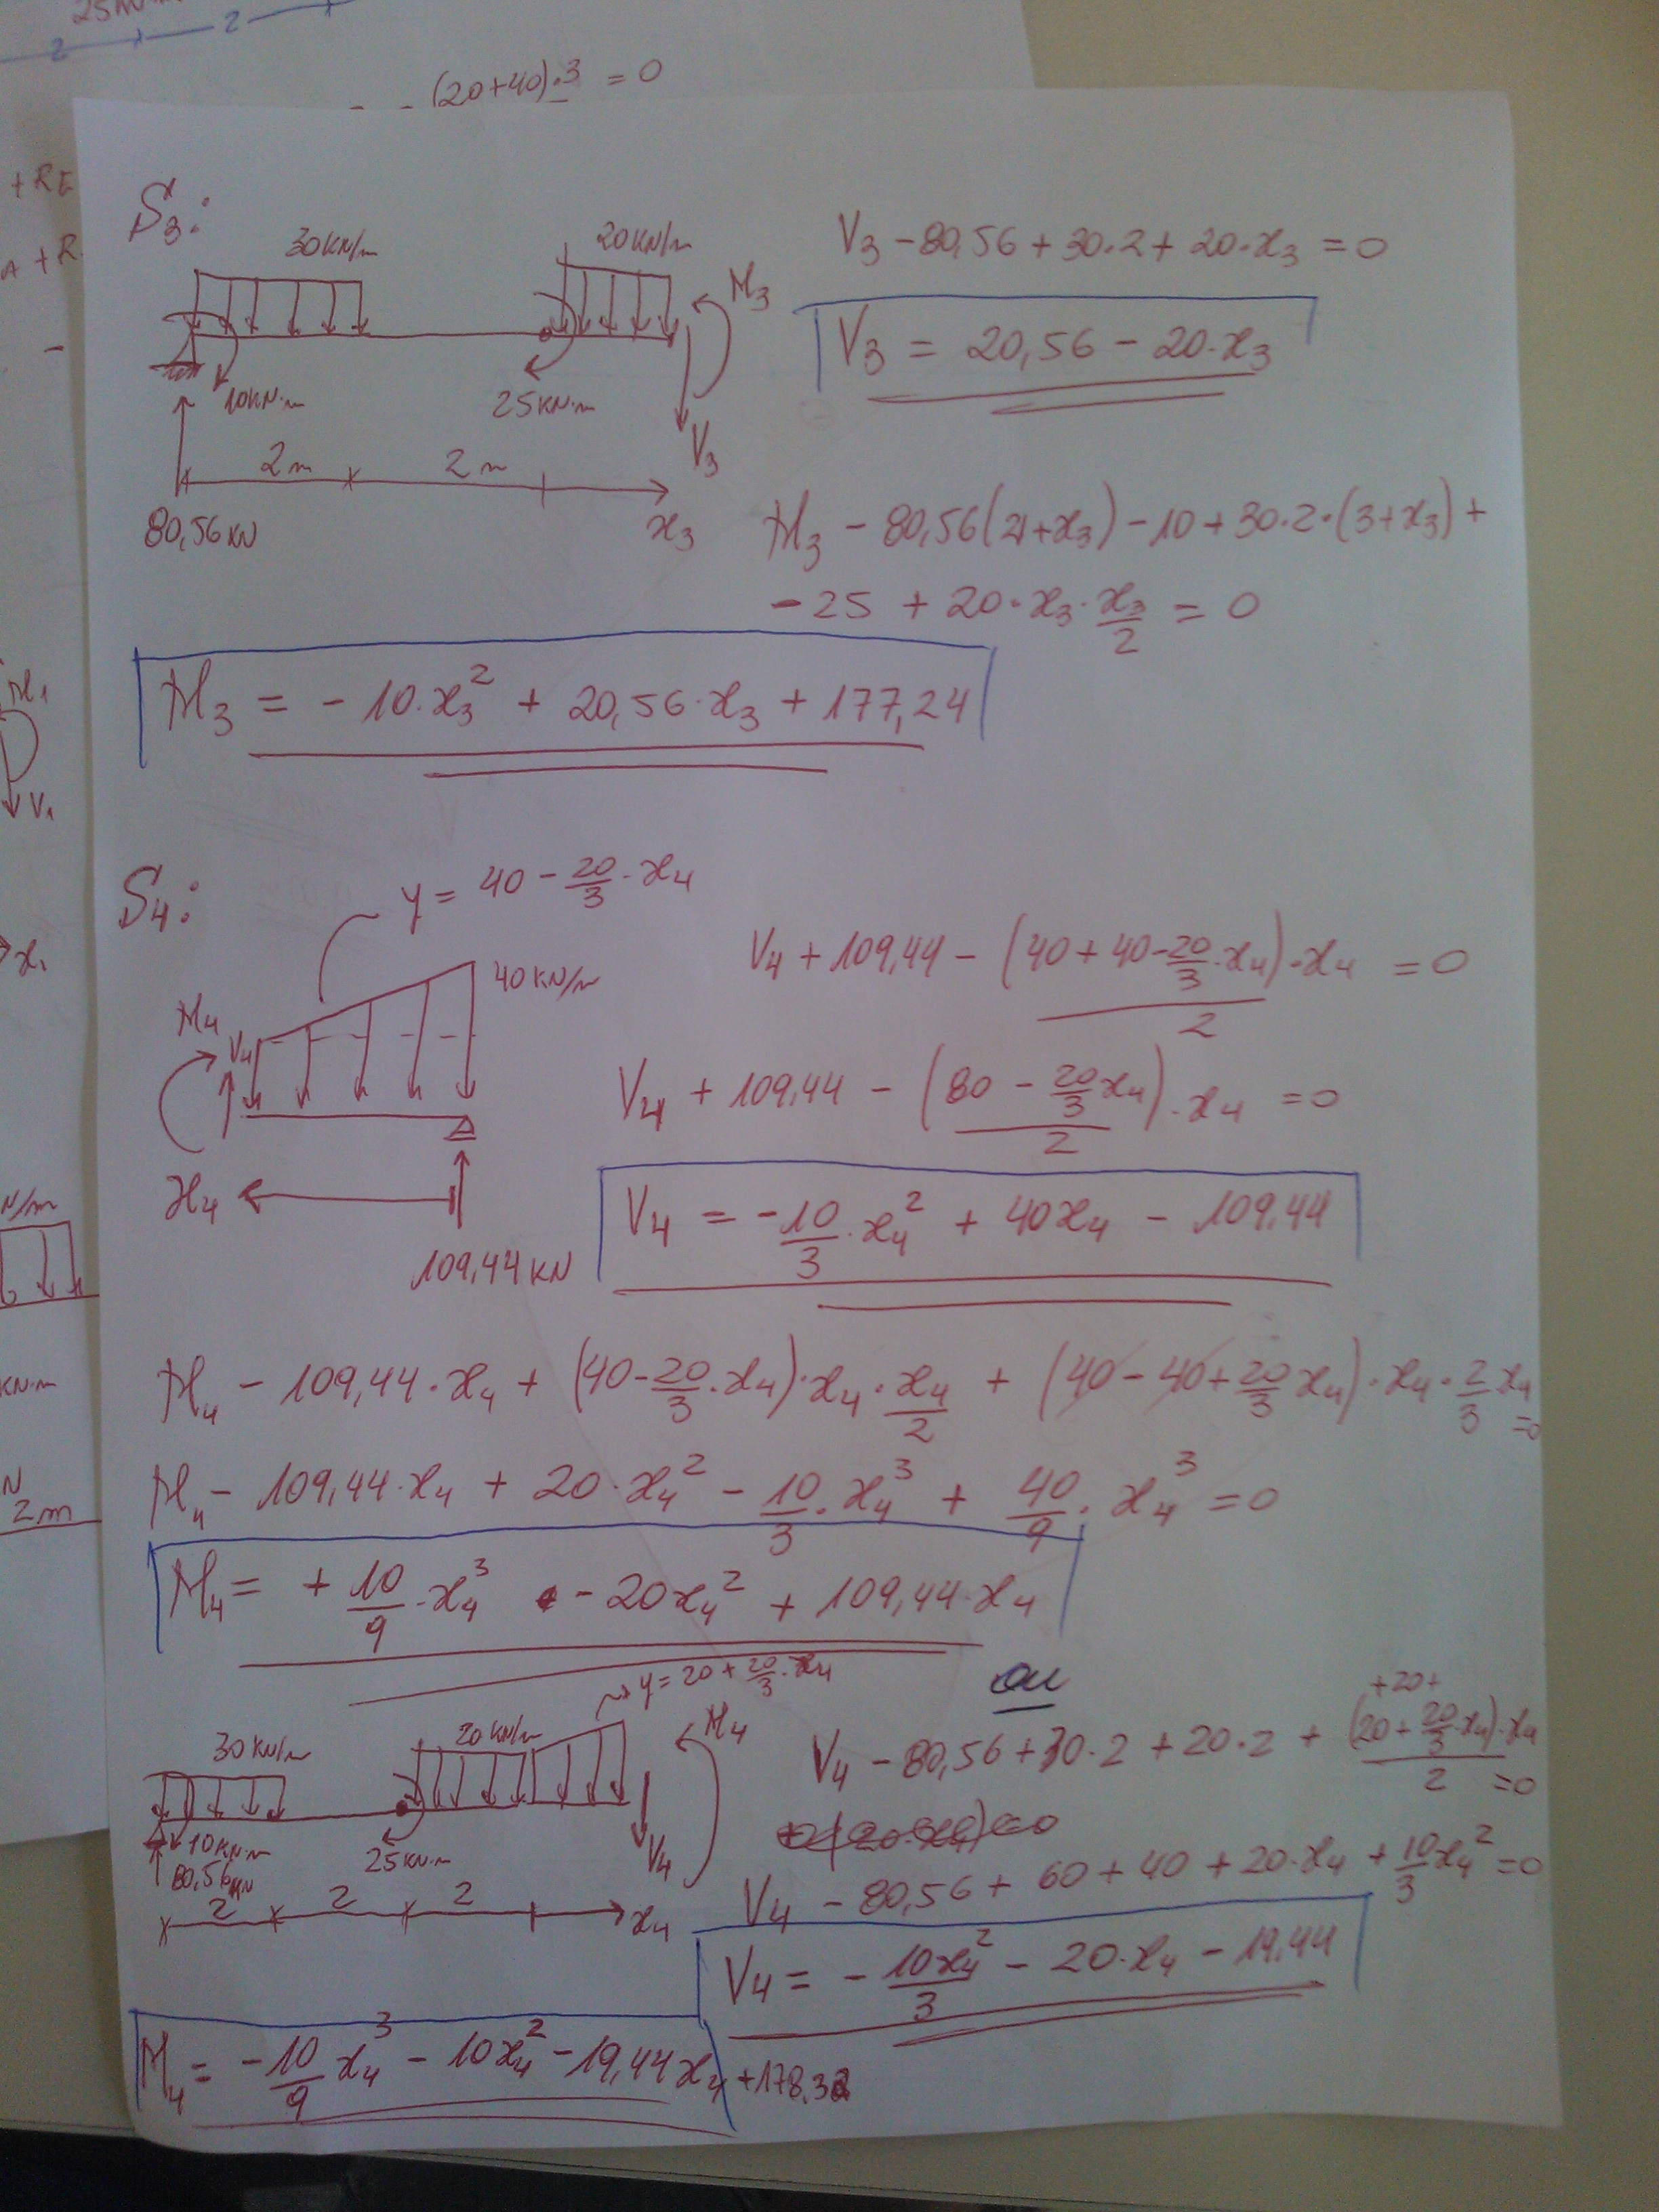 25KN.m
2 2
(20+40).3 = 0
+RE
A +R
S3:
30KN/m 20KN/m
M3
10KN.m 25KN.m
V3
2m 2m
80,56KN x3
V3 - 80,56 + 30.2 + 20.x3 = 0
V3 = 20,56 - 20.x3
M3 - 80,56(4+x3) - 10 + 30.2.(3+x3) +
- 25 + 20.x3.x3/2 = 0
M3 = - 10.x3² + 20,56.x3 + 177,24
M1
V1
x1
S4:
y = 40 - 20/3.x4
40KN/m
M4
V4
x4
109,44KN
V4 + 109,44 - (40+40-20/3.x4).x4/2 = 0
V4 + 109,44 - (80 - 20/3x4)/2.x4 = 0
V4 = -10/3.x4² + 40x4 - 109,44
N/m
KN.m
N
2m
M4 - 109,44.x4 + (40-20/3.x4).x4.x4/2 + (40-40+20/3x4).x4.2/3x4 =0
M4 - 109,44.x4 + 20.x4² - 10/3.x4³ + 40/9.x4³ = 0
M4 = + 10/9.x4³ - 20x4² + 109,44.x4
ou
y = 20 + 20/3.x4
30KN/m 20KN/m M4
10KN.m
80,56KN 25KN.m V4
2 2 2 x4
+20+
V4 - 80,56 + 30.2 + 20.2 + (20+20/3.x4).x4/2 =0
V4 - 80,56 + 60 + 40 + 20.x4 + 10/3x4² = 0
V4 = - 10x4²/3 - 20.x4 - 19,44
M4 = -10/9 x4³ - 10x4² - 19,44x4 + 178,32